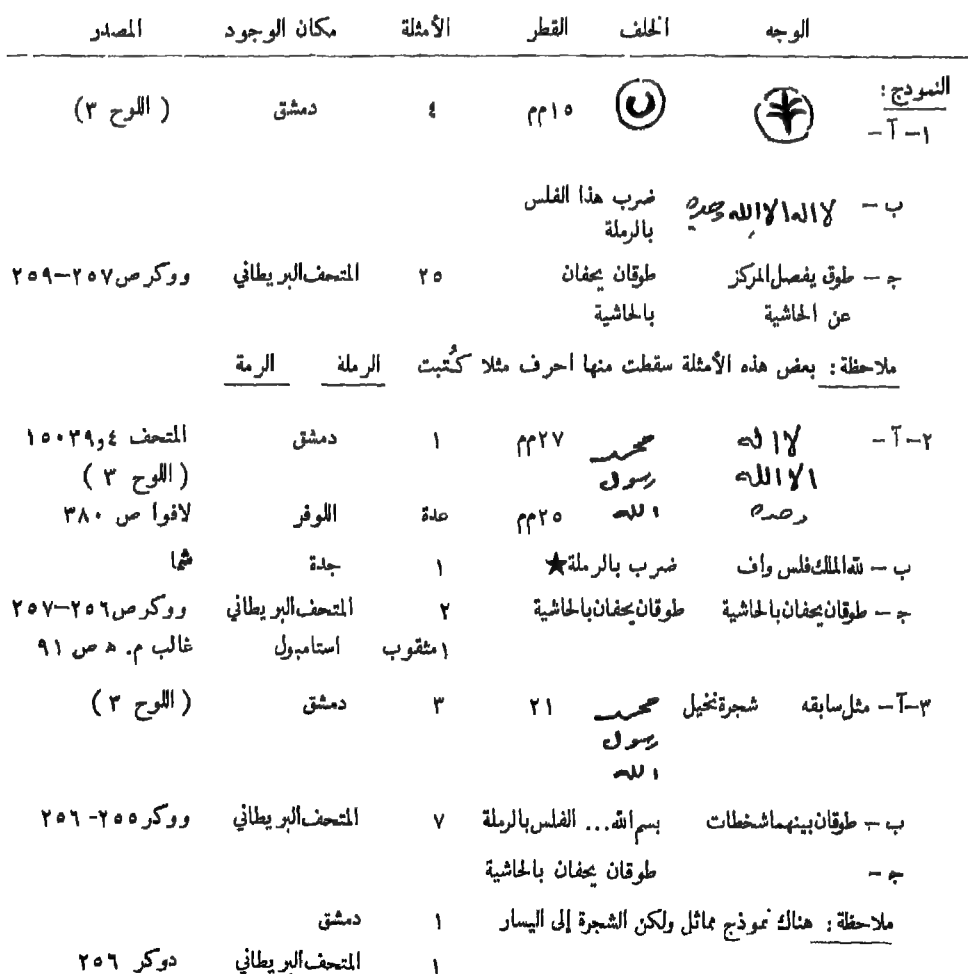 الوجه الخلف القطر الأمثلة مكان الوجود المصدر
النموذج :
١- آ - ١٥مم ٤ دمشق ( اللوح ٣)
ب - لا اله الا الله وحده ضرب هذا الفلس
بالرملة
ج - طوق يفصل المركز طوقان يحفان ٢٥ المتحف البريطاني ووكر ص ٢٥٧-٢٥٩
عن الحاشية بالحاشية
ملاحظة : بعض هذه الأمثلة سقطت منها احرف مثلا كُتبت الرملة الرمة
٢-آ - لا اله محمد ٢٧مم ١ دمشق المتحف ٤و١٥٠٣٩
الا الله رسول ( اللوح ٣ )
وحده الله ٢٥مم عدة اللوفر لافوا ص ٣٨٠
ب - لله الملك فلس واف ضرب بالرملة★ ١ جدة شما
ج - طوقان يحفان بالحاشية طوقان يحفان بالحاشية ٢ المتحف البريطاني ووكر ص ٢٥٦-٢٥٧
١ مثقوب استامبول غالب م. ه ص ٩١
٣-آ - مثل سابقه شجرة نخيل محمد ٢١ ٣ دمشق ( اللوح ٣ )
رسول
الله
ب - طوقان بينهما شخطات بسم الله... الفلس بالرملة ٧ المتحف البريطاني ووكر ٢٥٥- ٢٥٦
ج - طوقان يحفان بالحاشية
ملاحظة : هناك نموذج مماثل ولكن الشجرة إلى اليسار ١ دمشق
١ المتحف البريطاني دوكر ٢٥٦